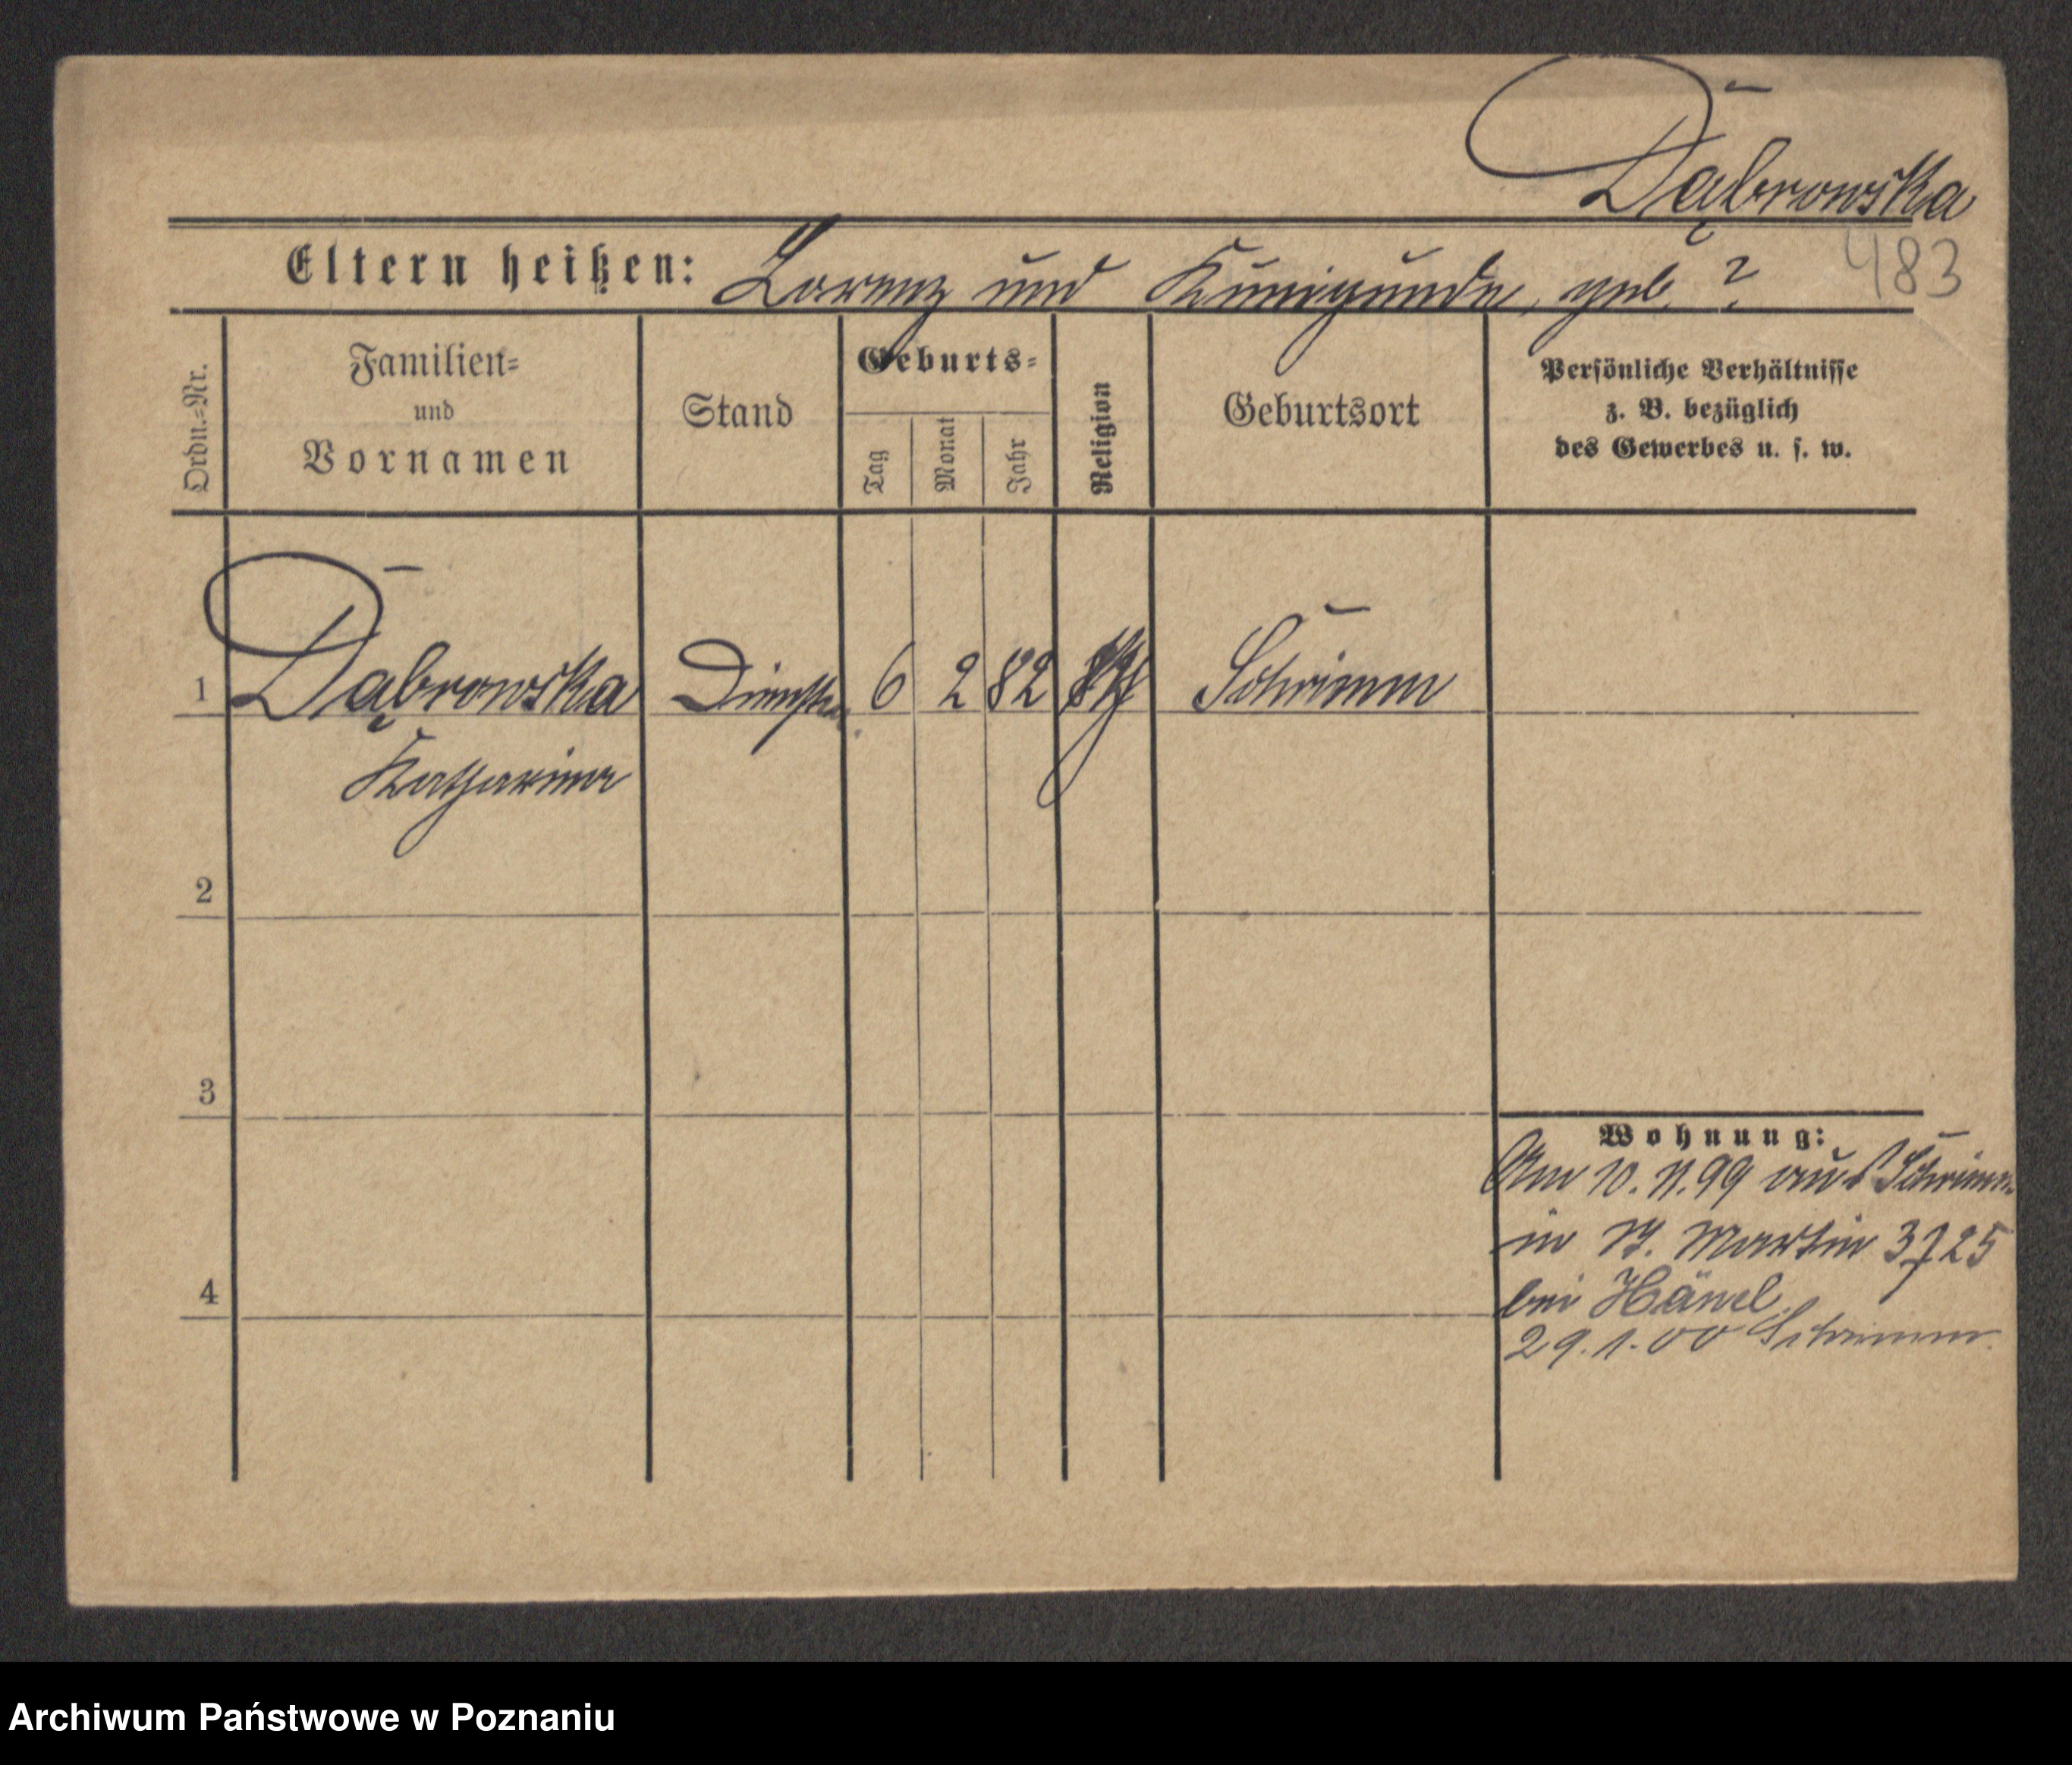 Dąbrowska
Eltern heißen: Lorenz und Kunigunde, geb. ?
483
Ordn.=Nr.
Familien=
und
Vornamen
Stand
Geburts=
Tag
Monat
Jahr
Religion
Geburtsort
Persönliche Verhältnisse
z. B. bezüglich
des Gewerbes u. s. w.
1 Dąbrowska 6 2 82 Schrimm
Katharina
2
3
4
Wohnung:
Am 10. 11. 99 aus Schrimm
in St. Martin 3725
bei Hänel.
29.1.00 Schrimm.
Archiwum Państwowe w Poznaniu